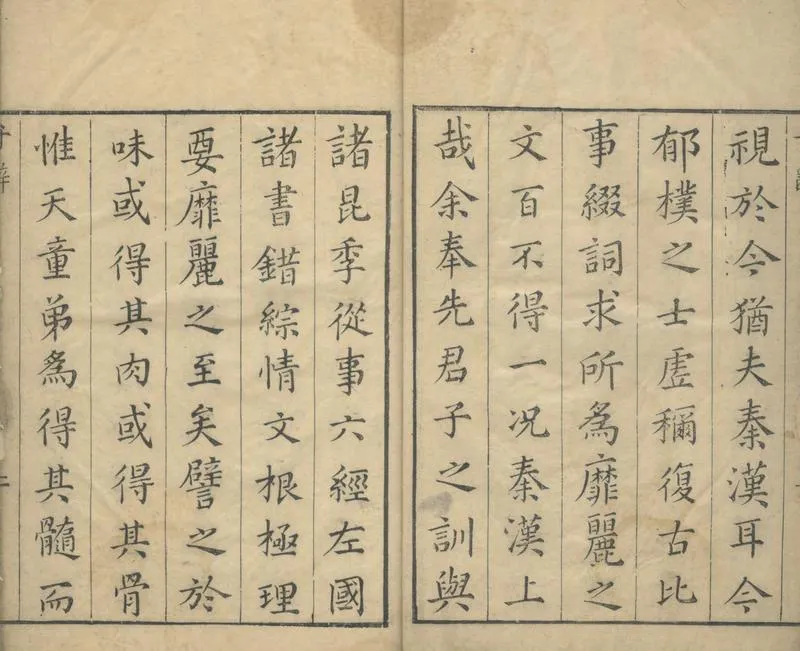 視於今猶夫秦漢耳今
郁樸之士虗稱復古比
事綴詞求所為靡麗之
文百不得一况秦漢上
哉余奉先君子之訓與
諸昆季從事六經左國
諸書錯綜情文根極理
要靡麗之至矣譬之於
味或得其肉或得其骨
惟天童弟為得其髓而